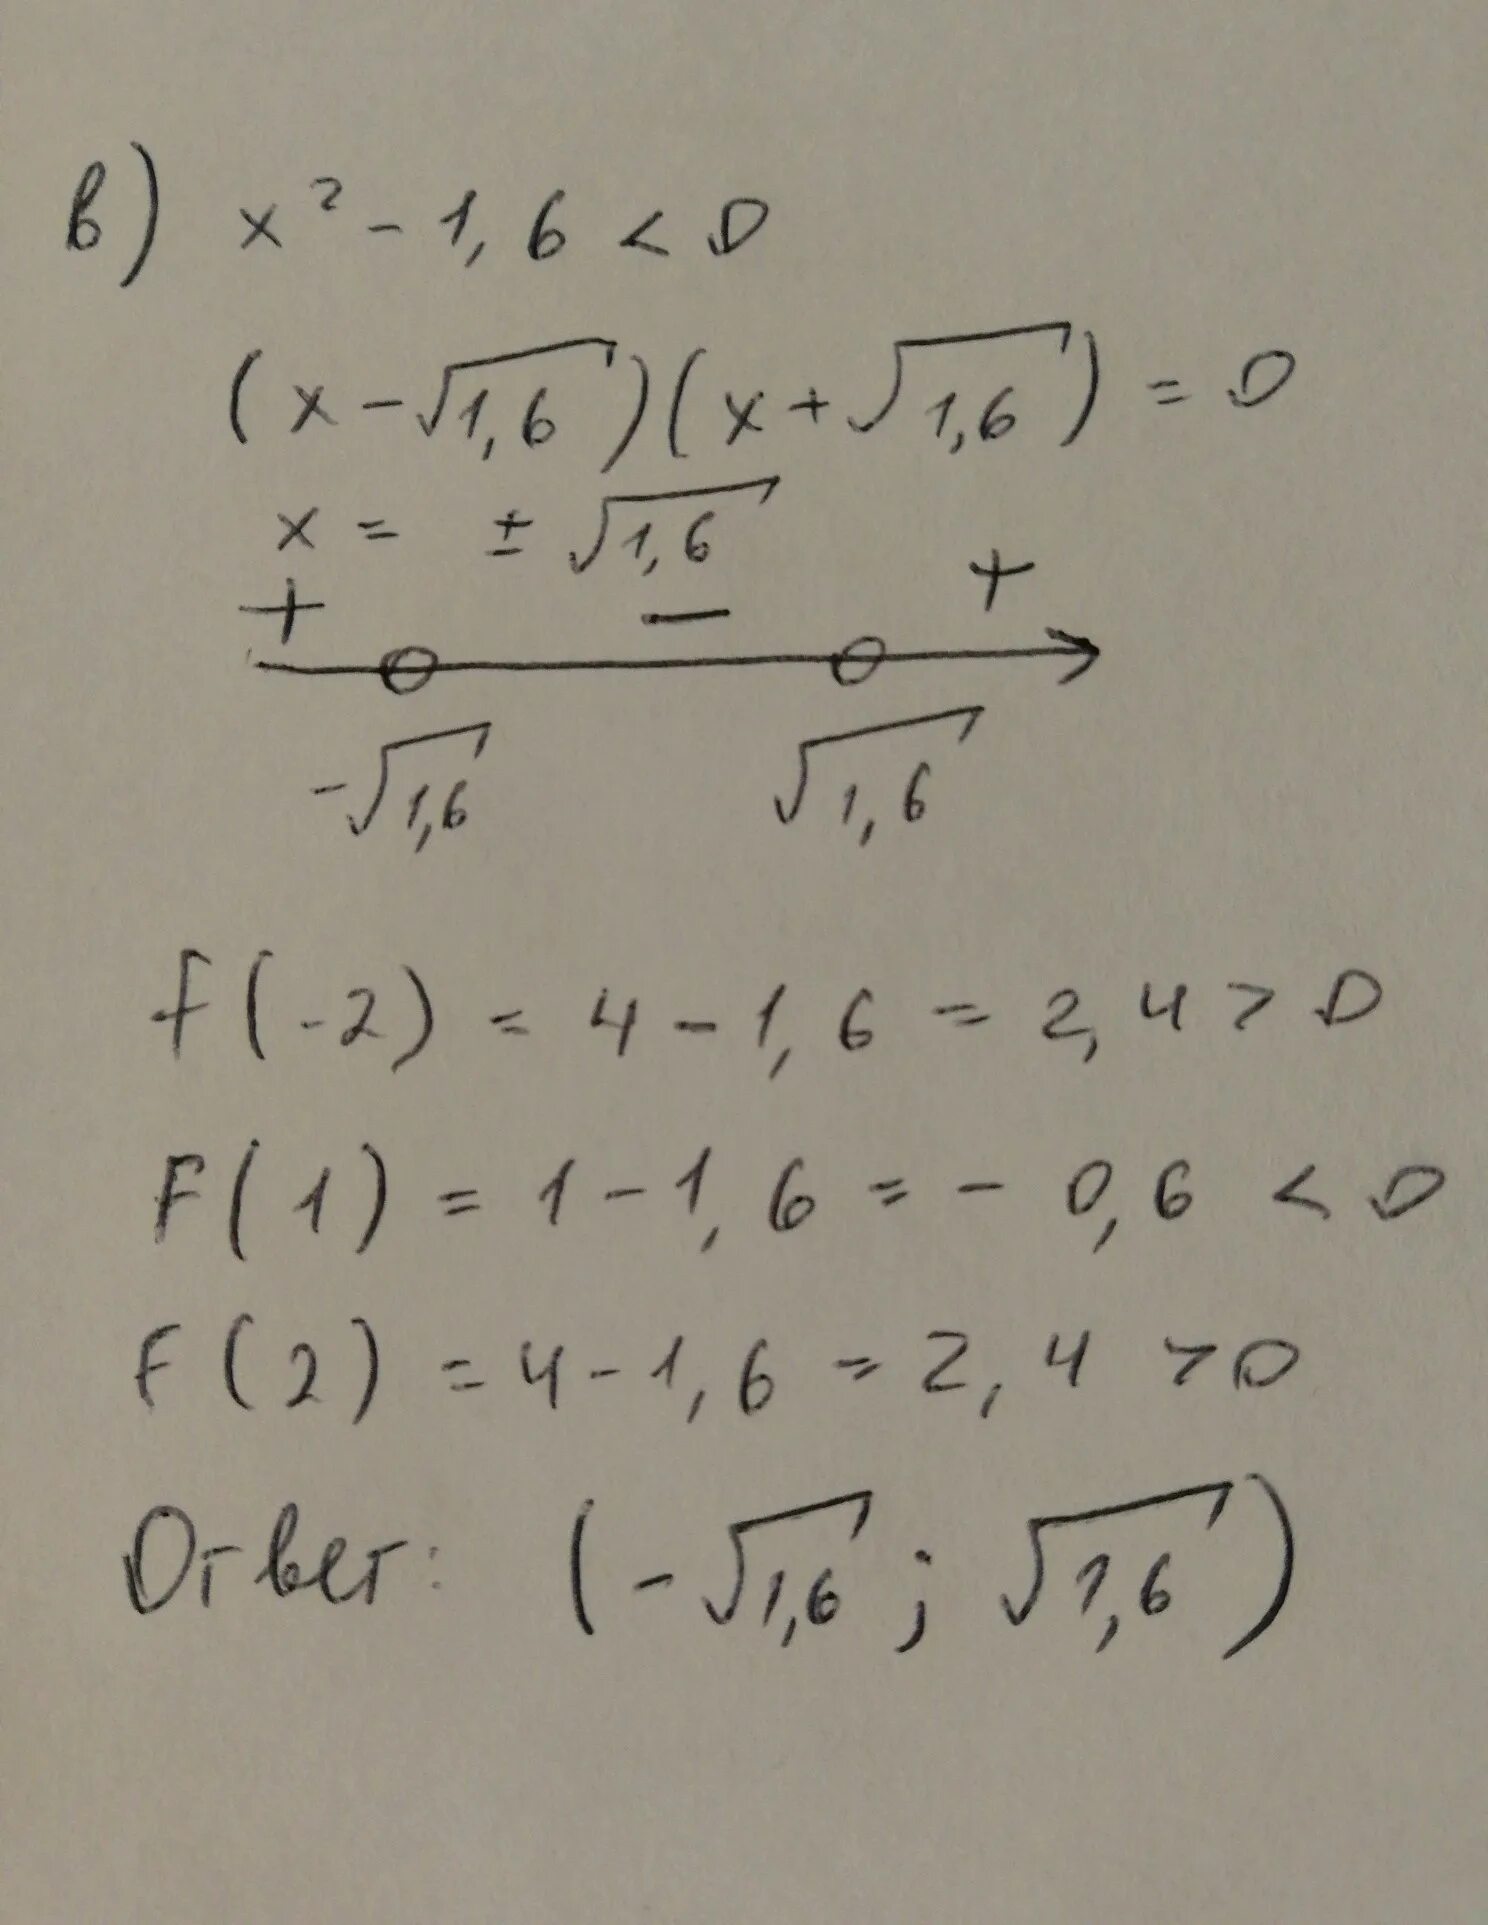 в) x² - 1,6 < 0
(x - √1,6)(x + √1,6) = 0
x = ± √1,6
+ − +
-√1,6 √1,6
f(-2) = 4 - 1,6 = 2,4 > 0
F(1) = 1 - 1,6 = - 0,6 < 0
F(2) = 4 - 1,6 = 2,4 > 0
Ответ: (-√1,6 ; √1,6)